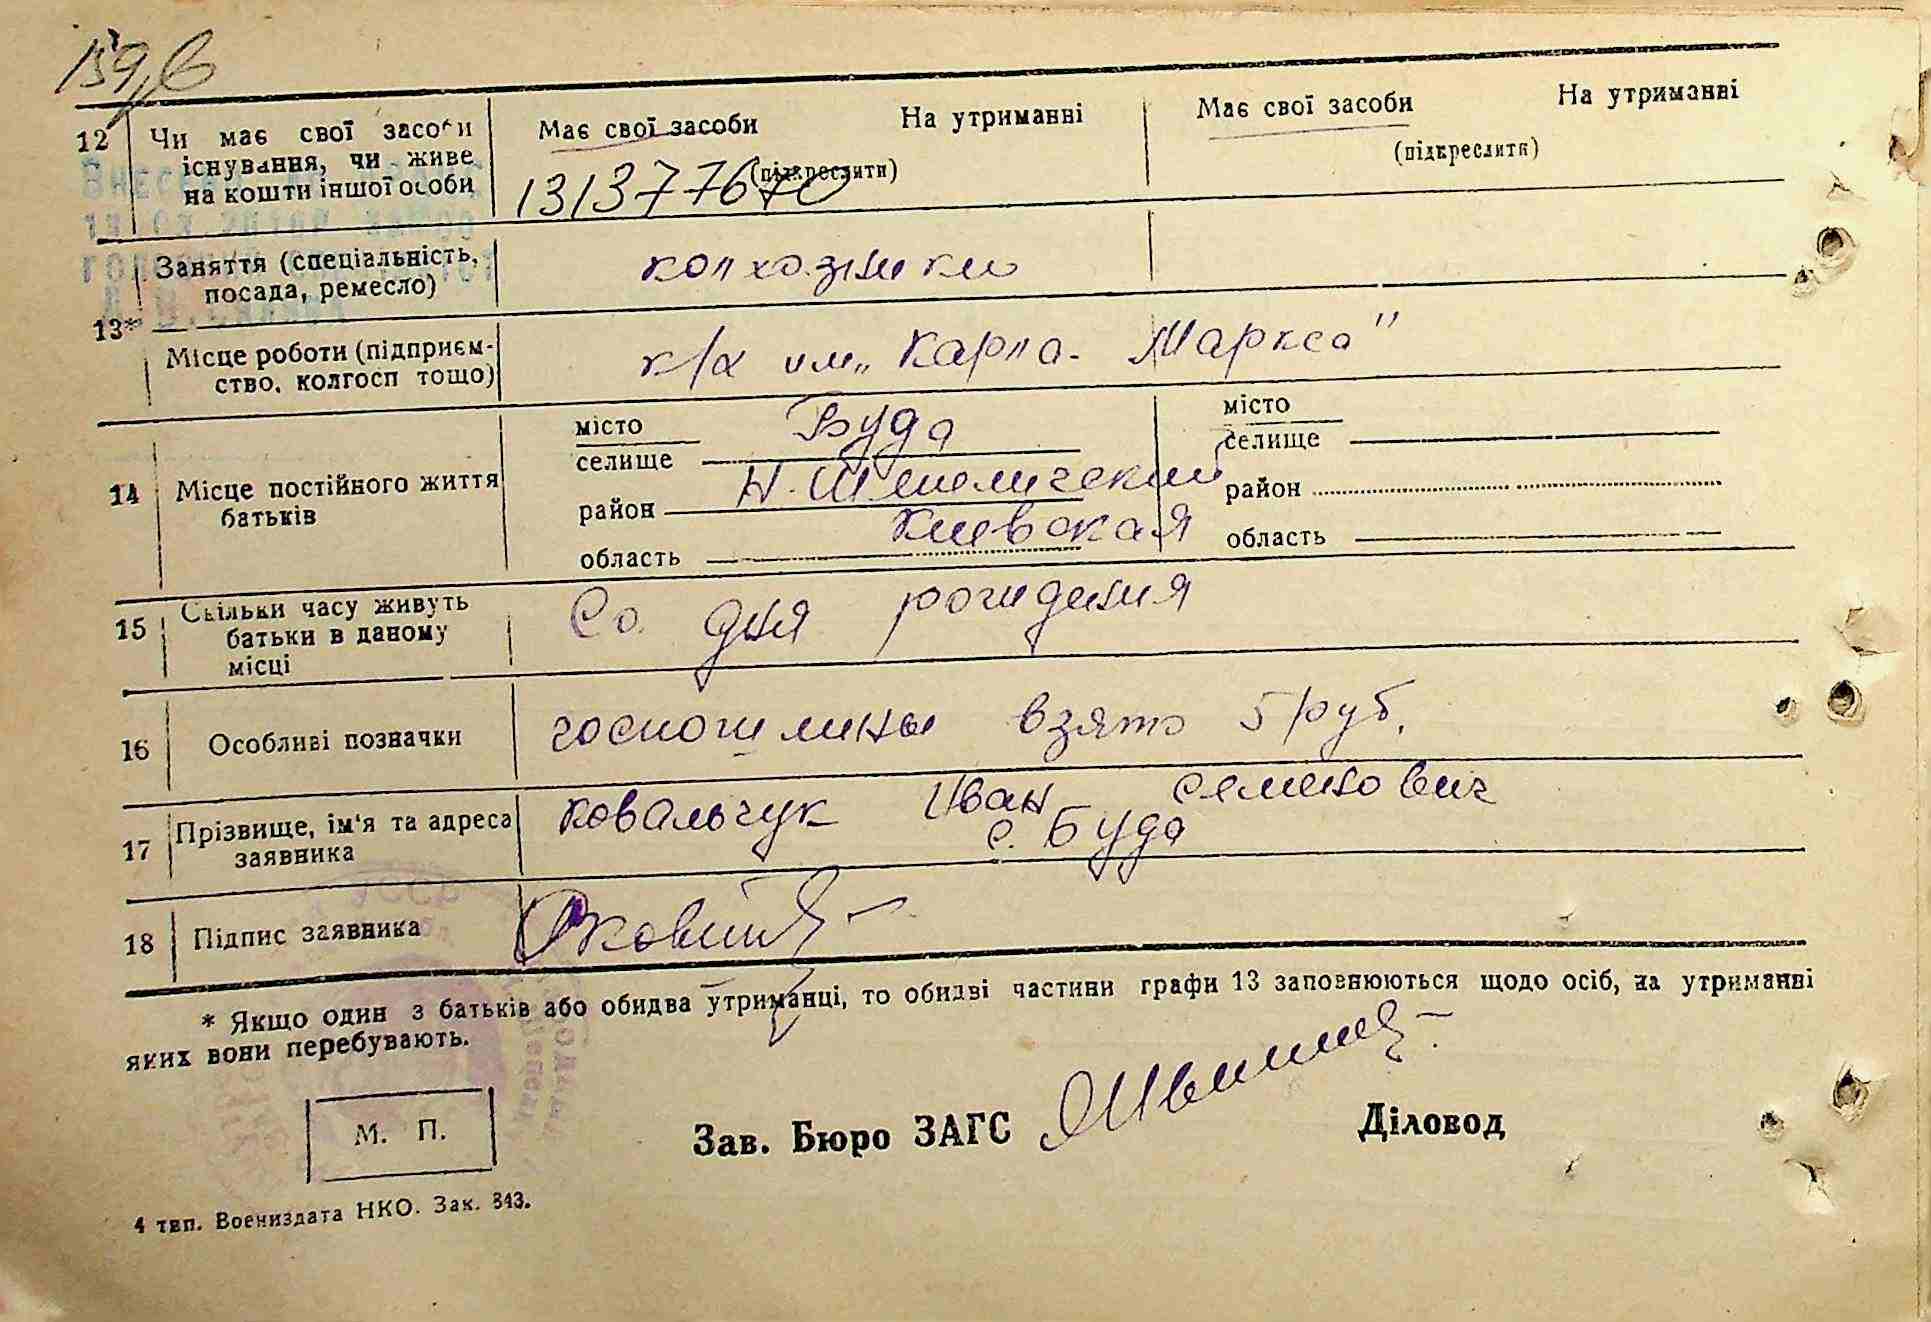 12 Чи має свої засоби існування, чи живе на кошти іншої особи
Має свої засоби На утриманні (підкреслити)
Має свої засоби На утриманні (підкреслити)
131377670
13* Заняття (спеціальність, посада, ремесло)
колхозники
Місце роботи (підприємство, колгосп тощо)
к/х им „Карла Маркса"
14 Місце постійного життя батьків
місто
селище Буда
район Н. Шепеличский
область Киевская
місто
селище
район
область
15 Скільки часу живуть батьки в даному місці
Со дня рождения
16 Особливі позначки
госпошлины взято 5 руб.
17 Прізвище, ім'я та адреса заявника
Ковальчук Иван Семенович
с. Буда
18 Підпис заявника
* Якщо один з батьків або обидва утриманці, то обидві частини графи 13 заповнюються щодо осіб, на утриманні
яких вони перебувають.
М. П.
Зав. Бюро ЗАГС Діловод
4 тип. Воениздата НКО. Зак. 343.